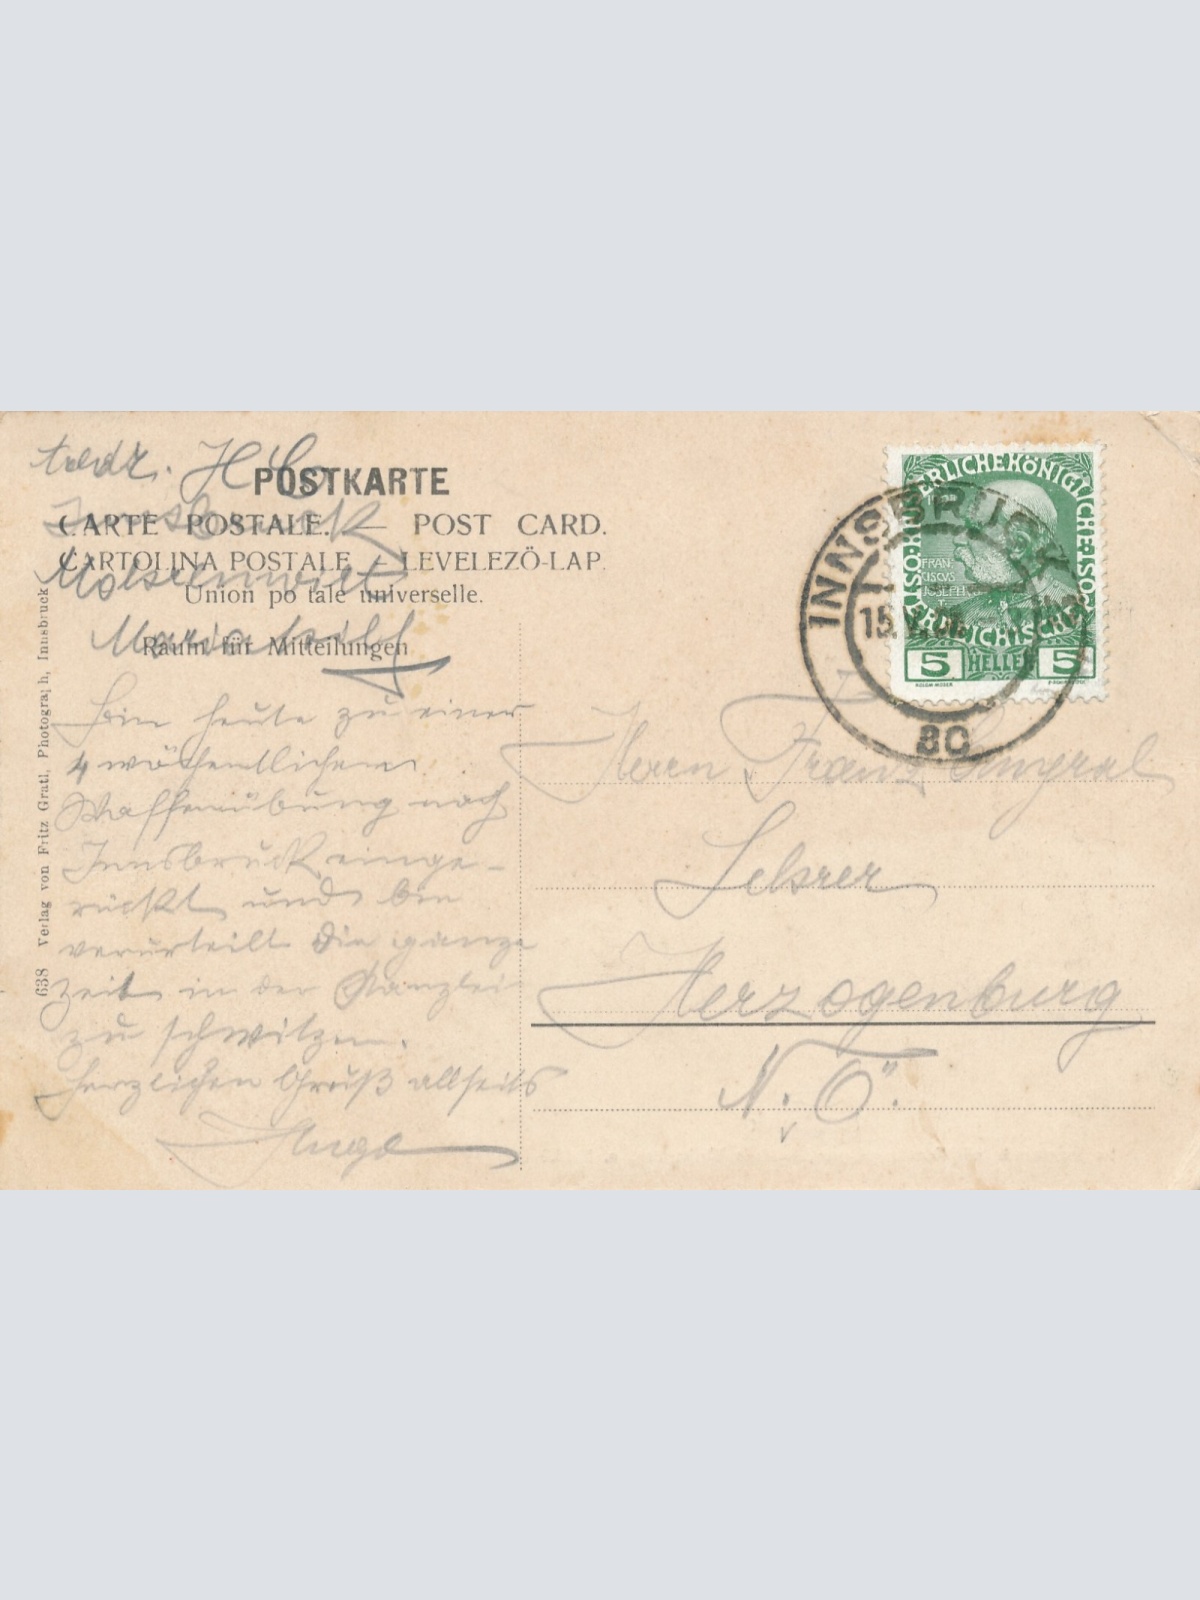 POSTKARTE
CARTE POSTALE. — POST CARD.
CARTOLINA POSTALE — LEVELEZÖ-LAP.
Union po tale universelle.
Raum für Mitteilungen
Innsbruck
Mariahilf
Bin heute zu einer
4 wöchentlichen
Waffenübung nach
Innsbruck einge-
rückt und bin
verurteilt die ganze
Zeit in der Kanzlei
zu schwitzen.
Herzlichen Gruß allseits
Hugo
638 Verlag von Fritz Gratl, Photograph, Innsbruck
KAISERLICHE KÖNIGLICHE ÖSTERREICHISCHE POST
FRAN
CISCVS
JOSEPH
5 HELLER 5
KOLOM·MOSER
INNSBRUCK
80
Herrn Franz
Lehrer
Herzogenburg
N. Ö.